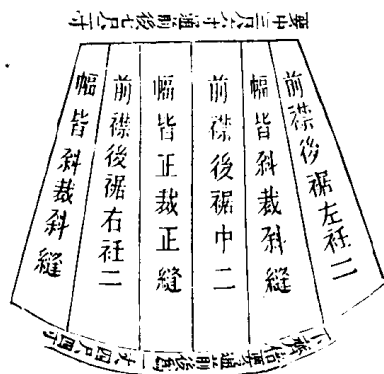 要中三尺六寸通前後七尺二寸
前襟後裾左衽二
幅皆斜裁斜縫
前襟後裾中二
幅皆正裁正縫
前襟後裾右衽二
幅皆斜裁斜縫
下齊倍要通前後爲一丈四尺四寸